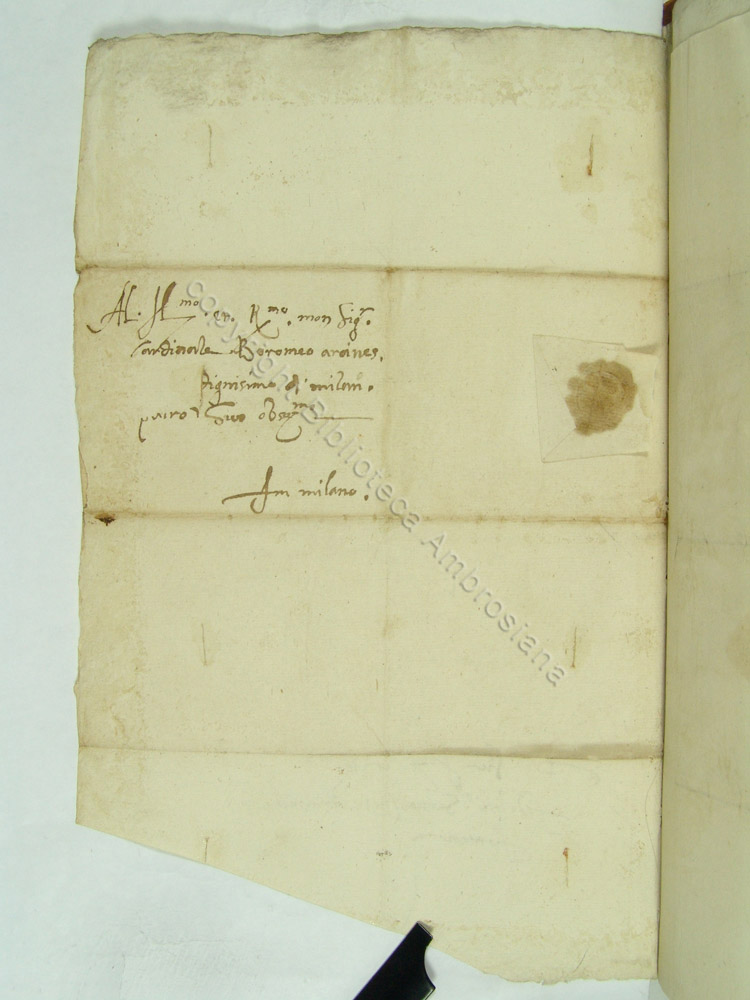 Al. Ill.mo et. R.mo. mon Sig.r
Cardinale Boromeo arcives.
dignisimo di milan.
patro[n] suo obs.mo
Im milano.
copyright Biblioteca Ambrosiana